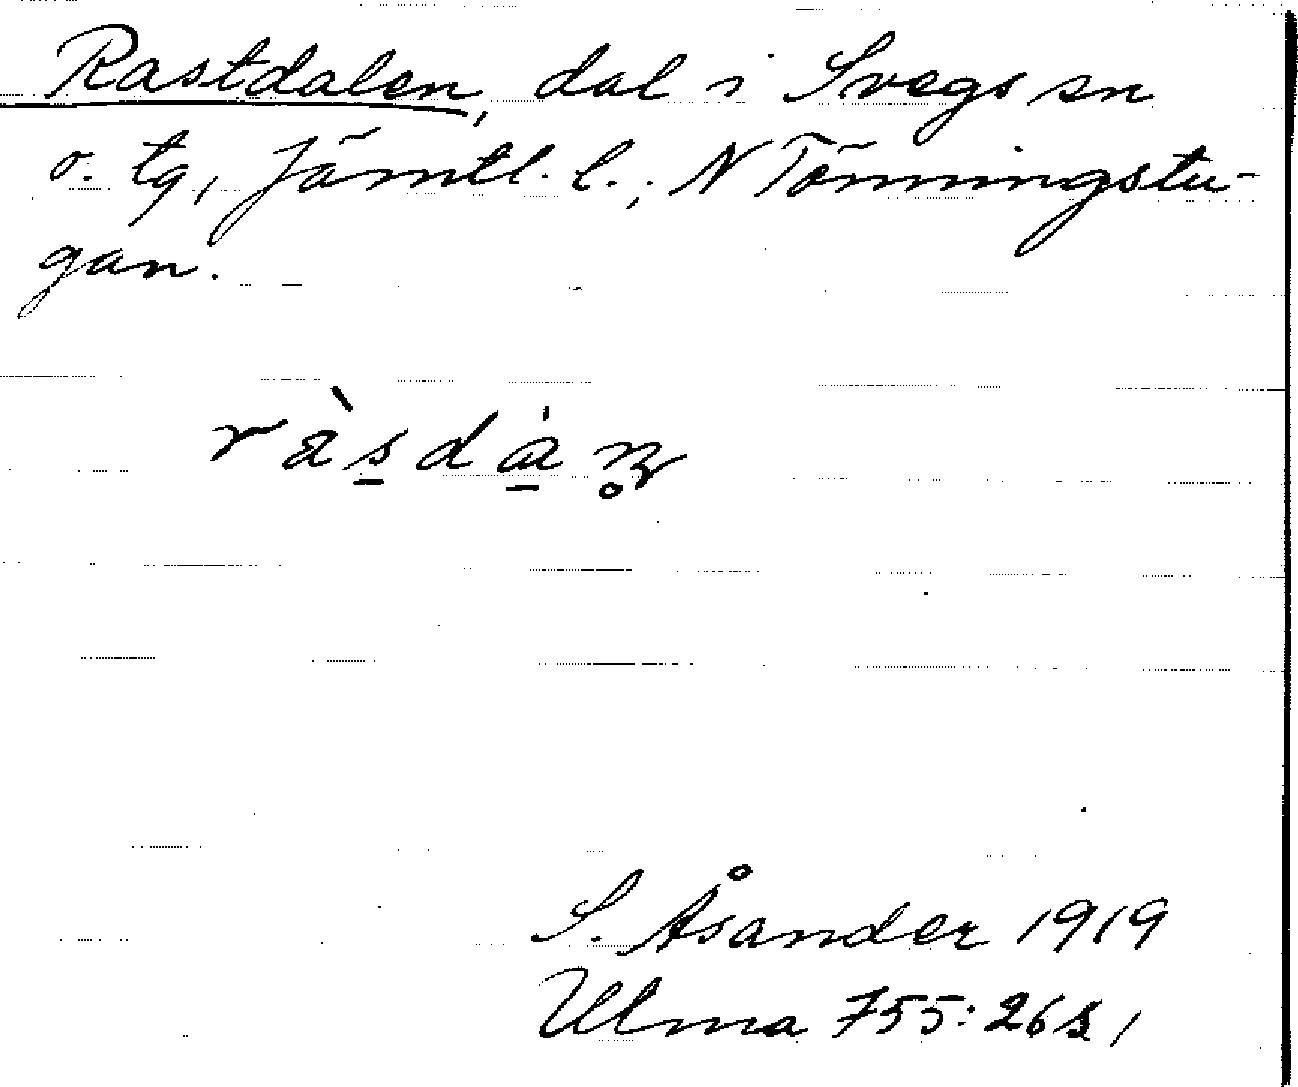 Rastdalen, dal i Svegs sn
o. tg, Jämtl. l.; N Tönningstu-
gan.
ràs̲dȧ̲n̥
S. Åsander 1919
Ulma 755:26 s 1